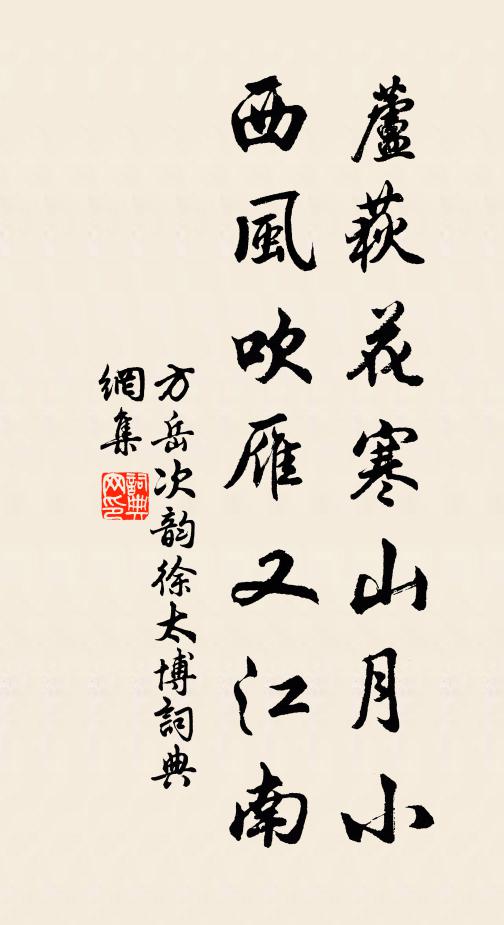 蘆萩花寒山月小
西風吹雁又江南
方岳次韵徐太博詞典
網集
詞典網印